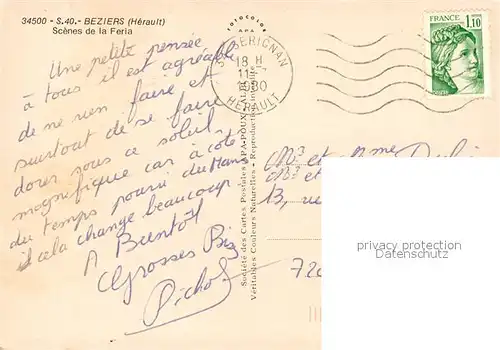 34500 - S.40.- BEZIERS (Hérault)
Scènes de la Feria
Une petite pensée
à tous il est agréable
de ne rien faire et
surtout de se faire
dorer sous ce soleil
magnifique car à côté
du temps pourri du Mans
cela change beaucoup.
A Bientôt
Grosses Biz
FOTOCOLOR
APA
Société des Cartes Postales APA-POUX - ALBI
Véritables Couleurs Naturelles - Reproduction interdite
SERIGNAN
18 H
11-7
1980
HERAULT
FRANCE
1,10
Mr et Mme
Mr et
13, rue
720
privacy protection
Datenschutz